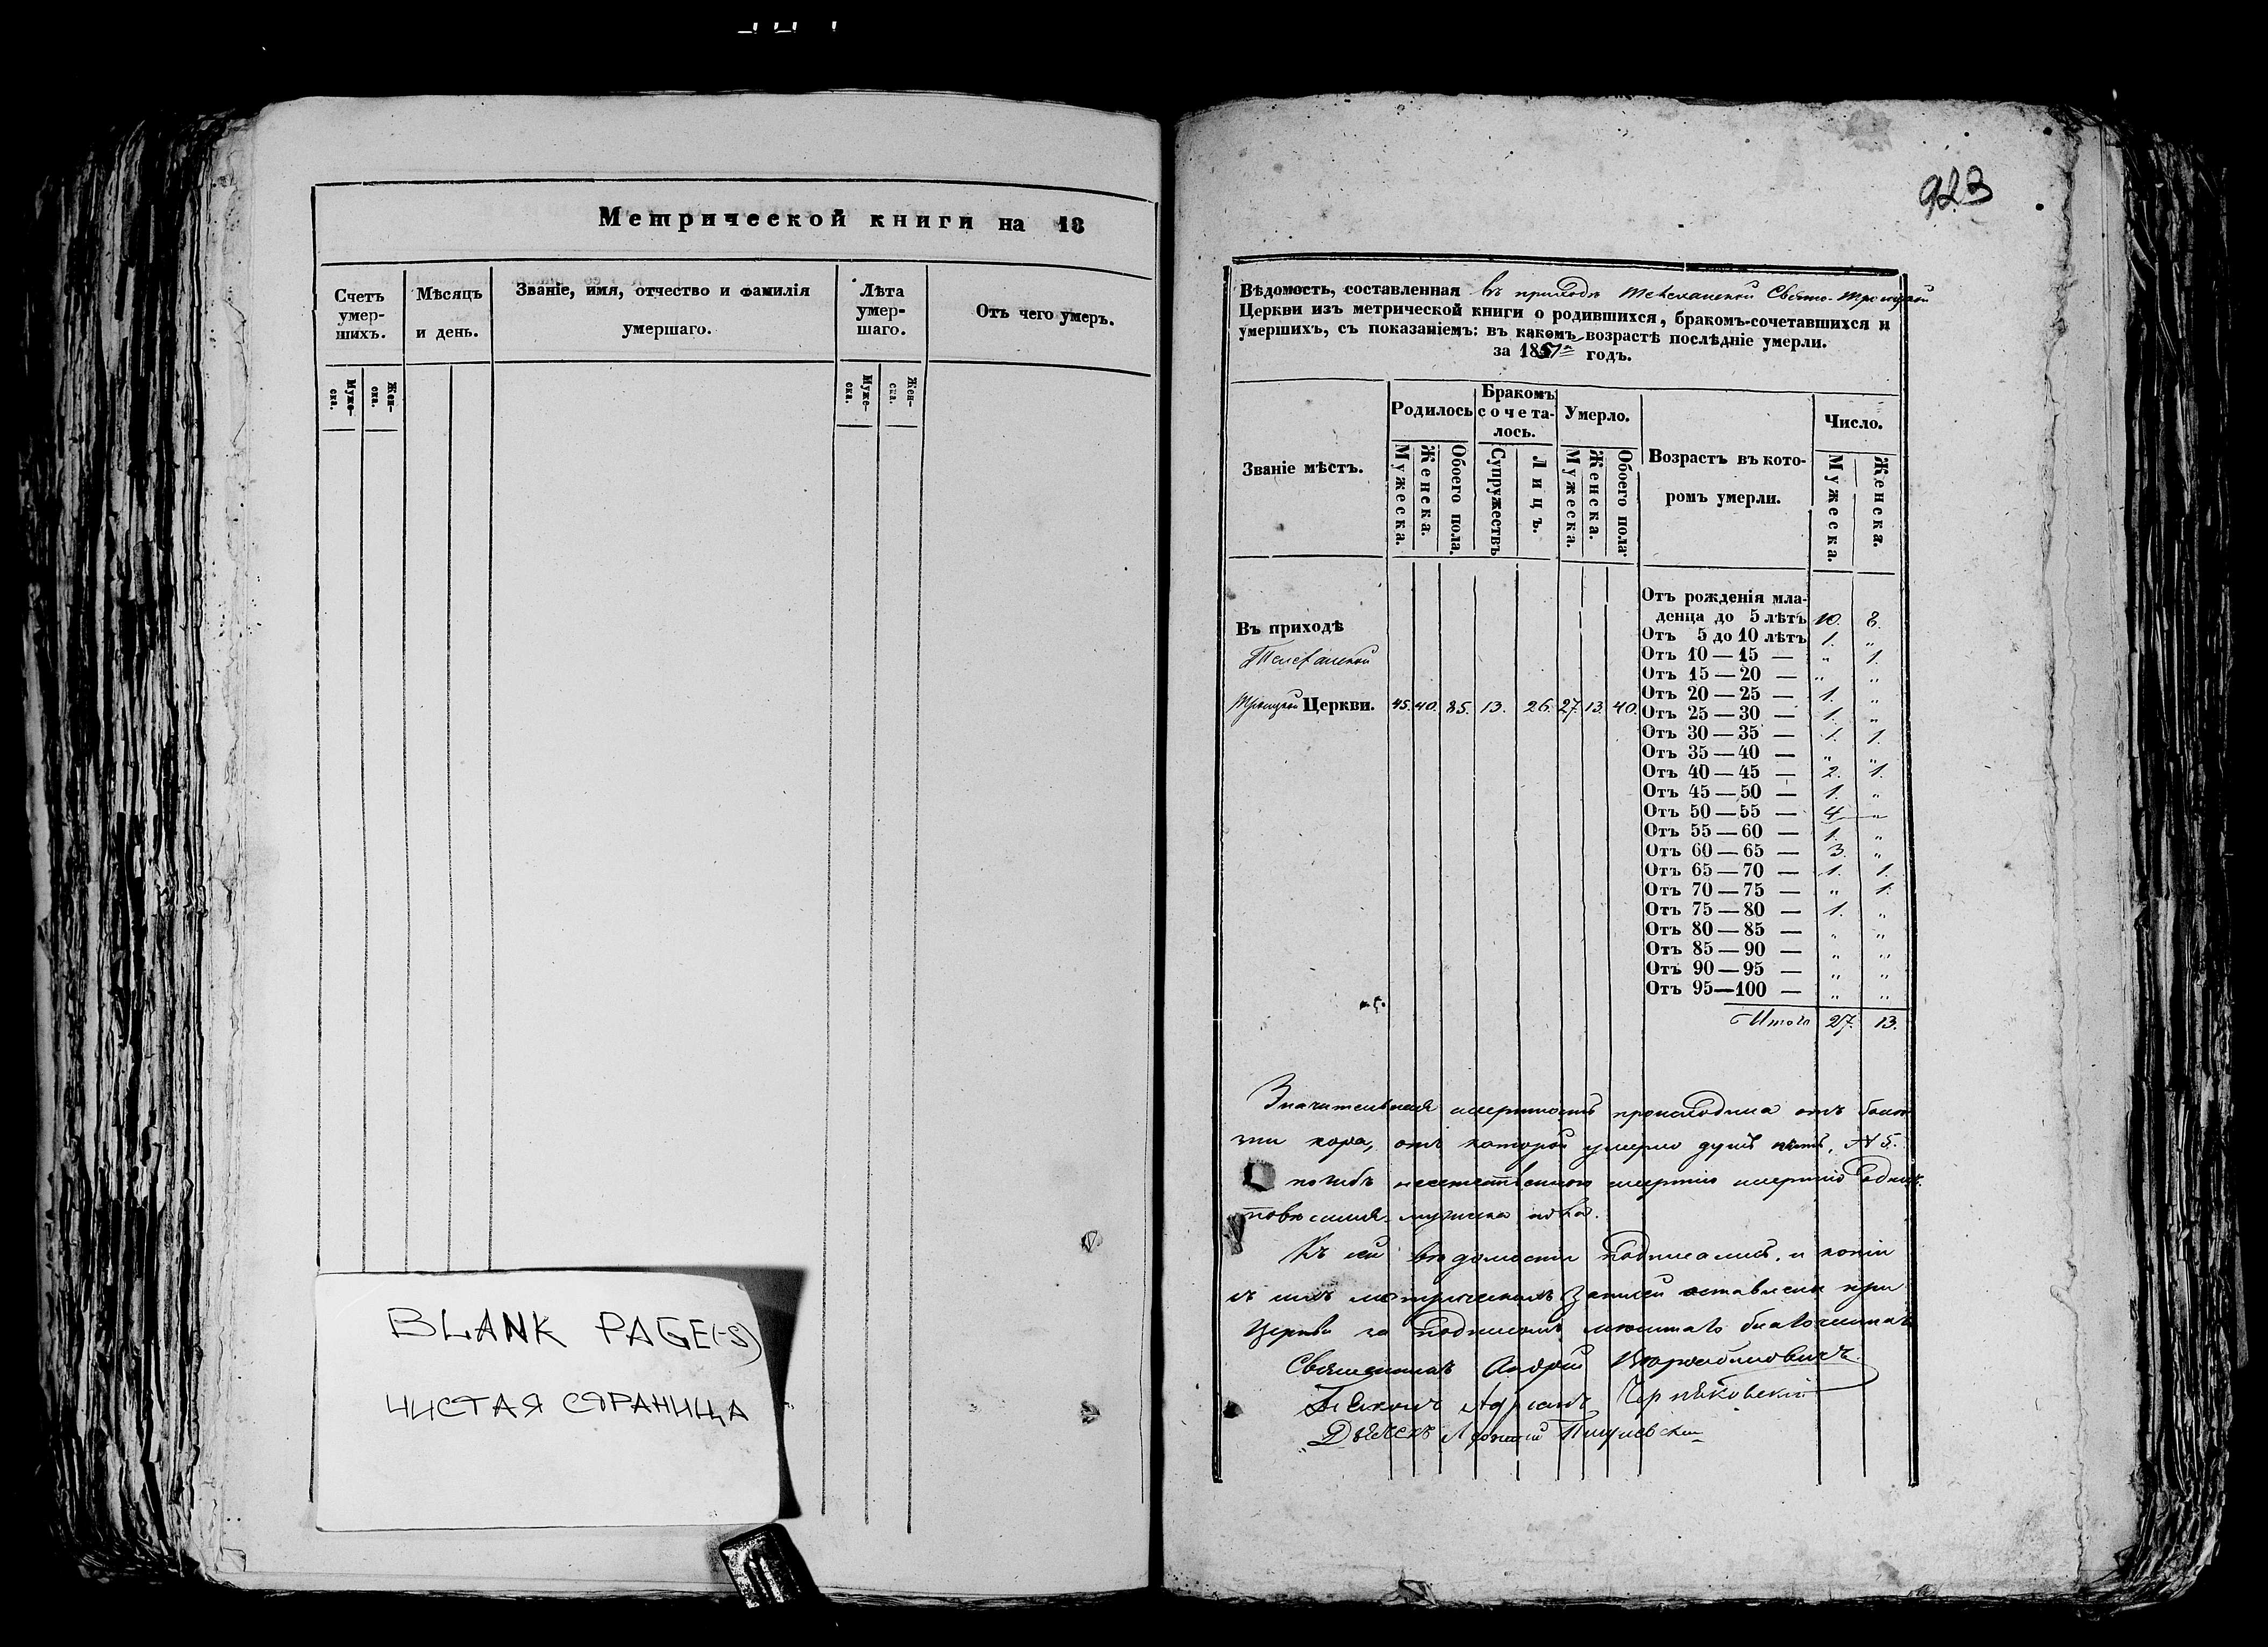 Метрической книги на 18
Счетъ умер-шихъ.
Мѣсяцъ и день.
Званіе, имя, отчество и фамилія умершаго.
Лѣта умер-шаго.
Отъ чего умеръ.
Муже-ска.
Жен-ска.
Муже-ска.
Жен-ска.
BLANK PAGE(-S)
ЧИСТАЯ СТРАНИЦА
923
Вѣдомость, составленная въ приходѣ Свято-Троицкой
Церкви изъ метрической книги о родившихся, бракомъ-сочетавшихся и
умершихъ, съ показаніемъ: въ какомъ возрастѣ послѣдніе умерли.
за 1851 годъ.
Званіе мѣстъ.
Родилось
Бракомъ сочета-лось.
Умерло.
Возрастъ въ кото-ромъ умерли.
Число.
Мужеска.
Женска.
Обоего пола.
Супружествъ
Лицъ.
Мужеска.
Женска.
Обоего пола
Мужеска.
Женска.
Въ приходѣ
Троицкой Церкви. 45. 40. 85. 13. 26. 27. 13. 40.
Отъ рожденія мла-
денца до 5 лѣтъ 10. 8.
Отъ 5 до 10 лѣтъ 1. "
Отъ 10 — 15 — " 1.
Отъ 15 — 20 — " "
Отъ 20 — 25 — 1. "
Отъ 25 — 30 — 1. "
Отъ 30 — 35 — 1. 1.
Отъ 35 — 40 — " "
Отъ 40 — 45 — 2. 1.
Отъ 45 — 50 — 1. "
Отъ 50 — 55 — 4 "
Отъ 55 — 60 — 1. "
Отъ 60 — 65 — 3. "
Отъ 65 — 70 — 1. 1.
Отъ 70 — 75 — " 1.
Отъ 75 — 80 — 1. "
Отъ 80 — 85 — " "
Отъ 85 — 90 — " "
Отъ 90 — 95 — " "
Отъ 95—100 — " "
Итого 27. 13.
Значительная смертность происходила отъ
отъ которой умерло душъ пять, 5.
погибъ смертію
мужеска пола.
Къ сей вѣдомости подписались, и копіи
съ сихъ метрическихъ записей оставлены при
Церкви за подписомъ мѣстнаго благочиннаго
Священникъ Андрей